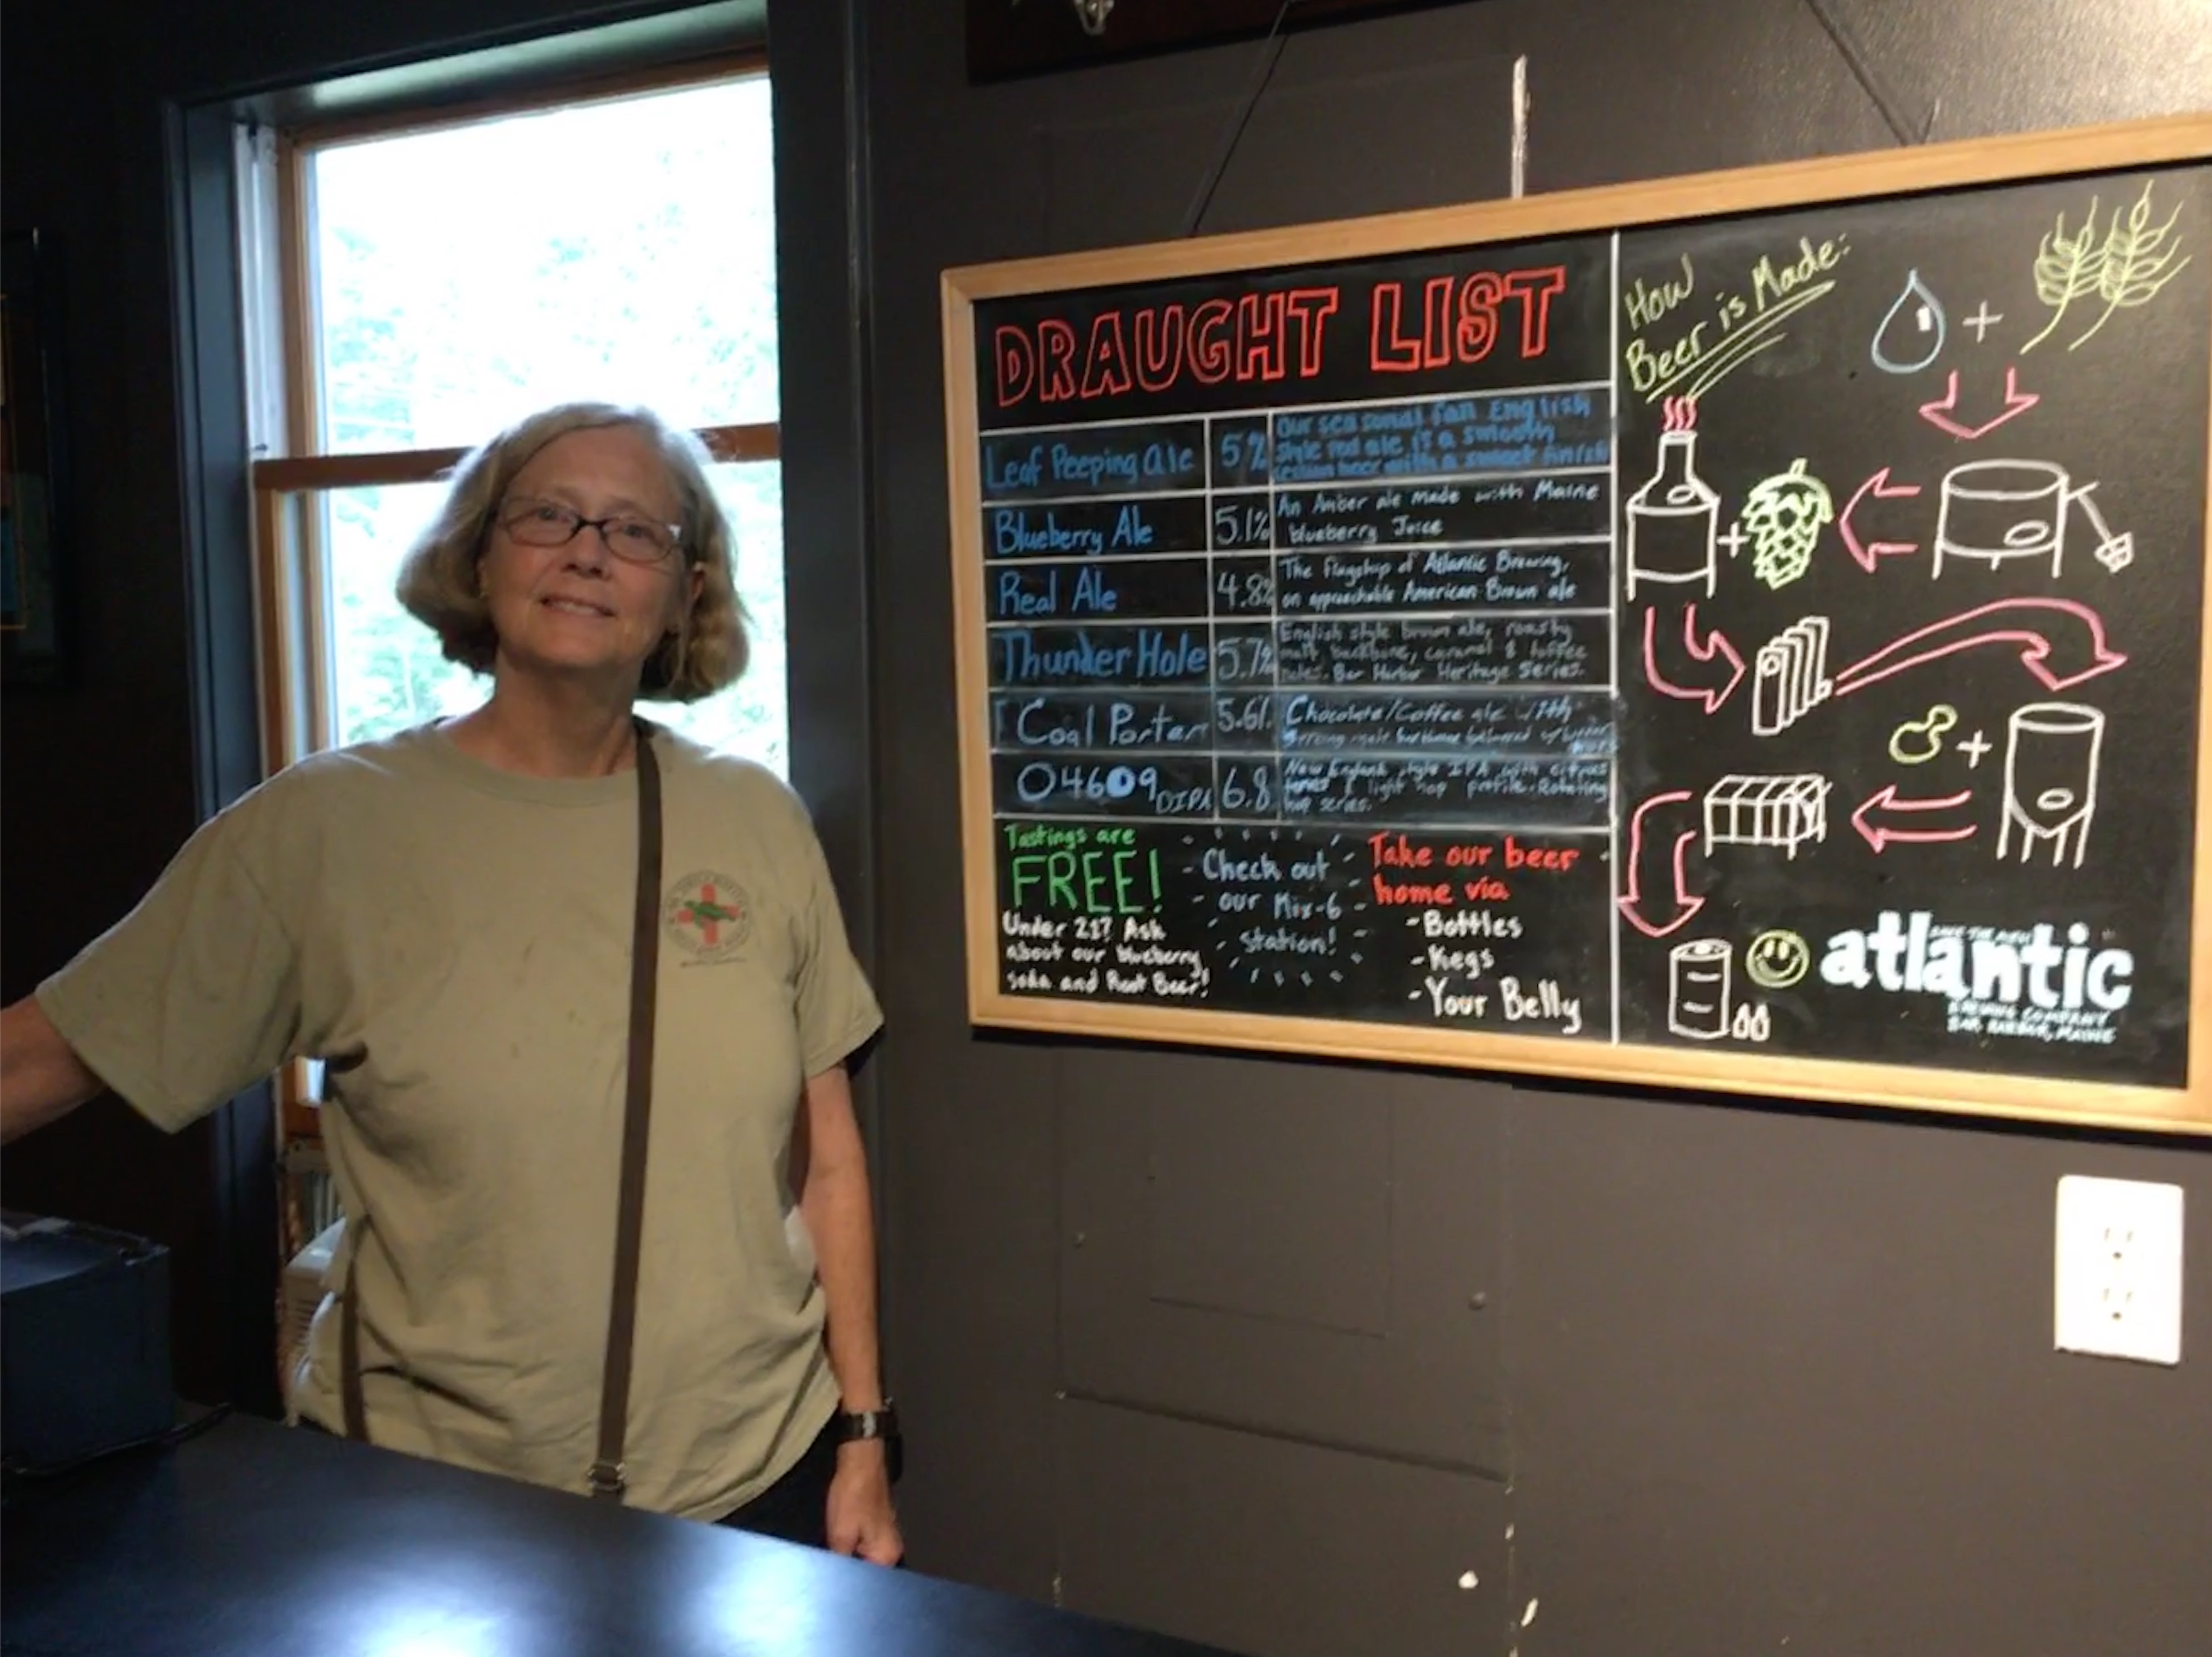 DRAUGHT LIST
Leaf Peeping Ale
5%
Our seasonal fall English
style red ale is a smooth
session beer with a sweet finish
Blueberry Ale
5.1%
An Amber ale made with Maine
blueberry Juice
Real Ale
4.8%
The flagship of Atlantic Brewing,
an approachable American Brown ale
Thunder Hole
5.7%
English style brown ale, roasty
malt backbone, caramel & toffee
notes. Bar Harbor Heritage Series.
Coal Porter
5.6%
Chocolate/Coffee ale with
Strong malt balanced w/
04609 DIPA
6.8
New England style IPA with citrus
& light hop profile. Rotating
hop series.
Tastings are
FREE!
Under 21? Ask
about our blueberry
soda and Root Beer!
- Check out -
- our Mix-6 -
station!
Take our beer
home via
- Bottles
- Kegs
- Your Belly
How
Beer is Made:
+
+
+
atlantic
BREWING COMPANY
BAR HARBOR, MAINE